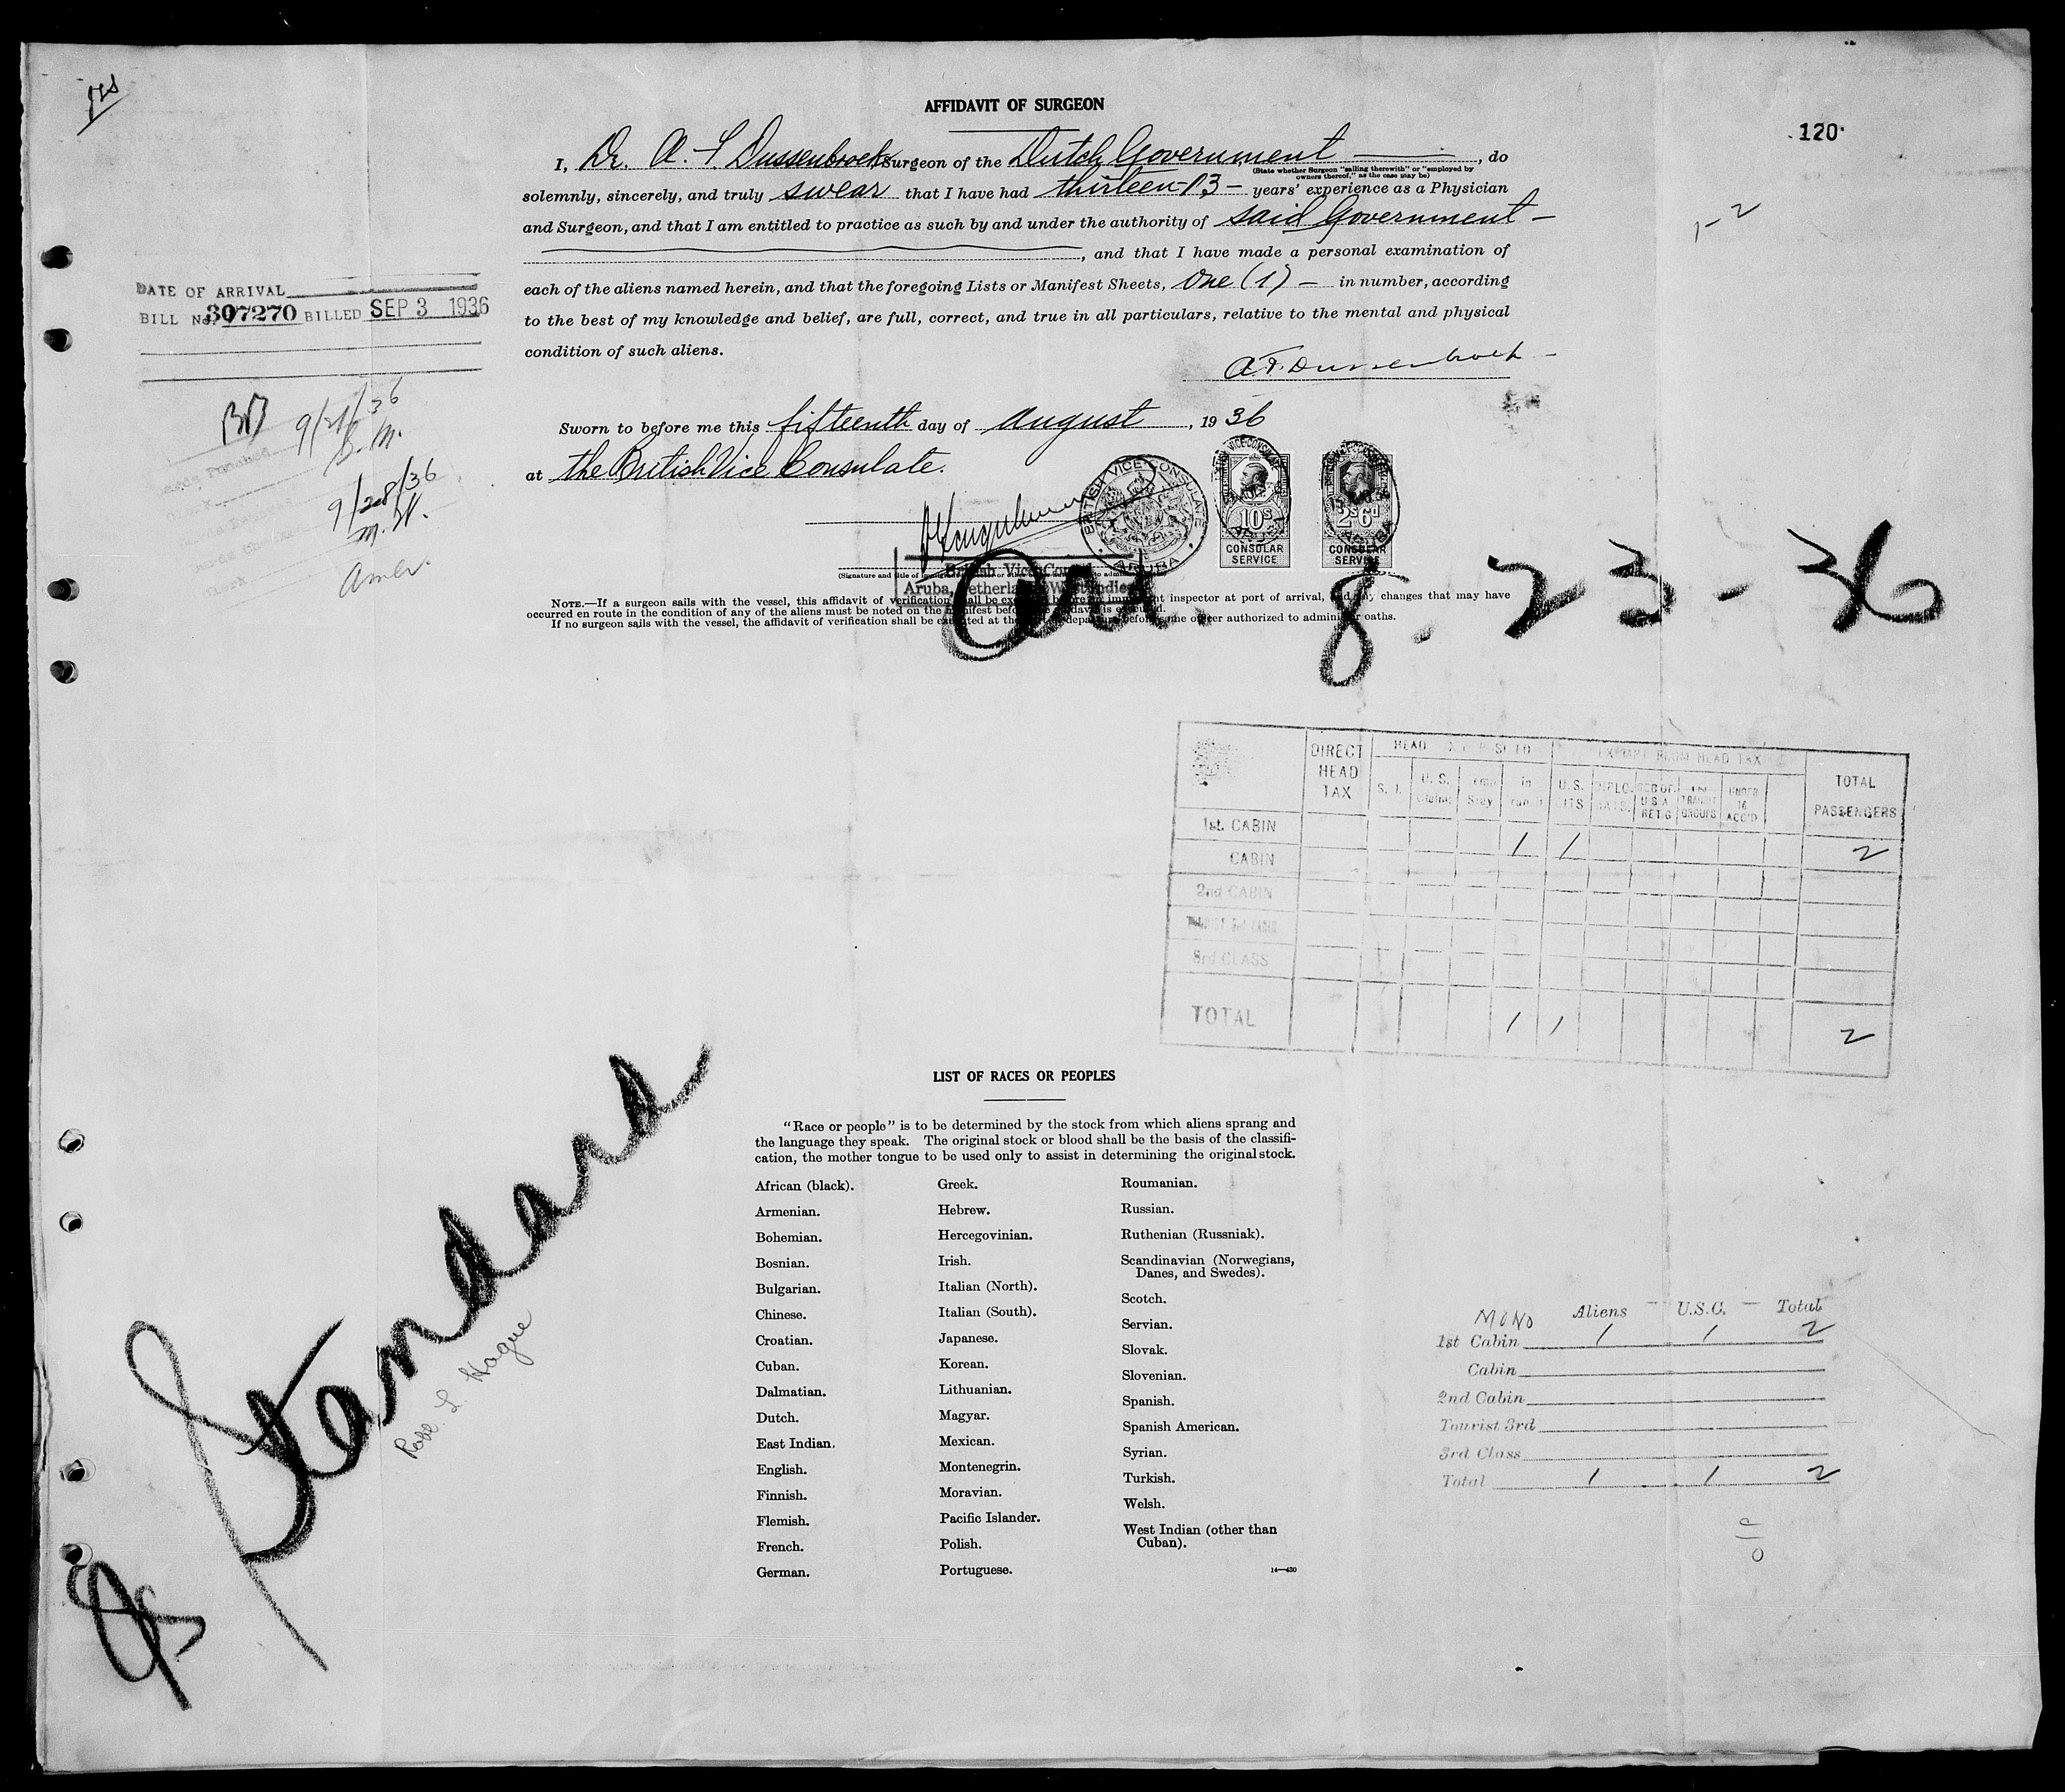 yes
AFFIDAVIT OF SURGEON
120
I, Dr. A. F. Dussenbroek, Surgeon of the Dutch Government, do
(State whether Surgeon "sailing therewith" or "employed by
owners thereof," as the case may be)
solemnly, sincerely, and truly swear that I have had thirteen-13- years' experience as a Physician
and Surgeon, and that I am entitled to practice as such by and under the authority of said Government -
, and that I have made a personal examination of
each of the aliens named herein, and that the foregoing Lists or Manifest Sheets, One (1) - in number, according
to the best of my knowledge and belief, are full, correct, and true in all particulars, relative to the mental and physical
condition of such aliens.
A. F. Dussenbroek
1-2
DATE OF ARRIVAL
BILL No. 307270 BILLED SEP 3 1936
9/21/36
B. M.
9/28/36
M. W.
Sworn to before me this fifteenth day of August, 1936
at the British Vice Consulate.
BRITISH VICE-CONSULATE
ARUBA
10s
CONSULAR
SERVICE
2s6d
CONSULAR
SERVICE
British Vice Consul
Aruba, Netherlands West Indies
Arr. 8. 23 - 36
NOTE.—If a surgeon sails with the vessel, this affidavit of verification shall be executed before an immigrant inspector at port of arrival, and any changes that may have
occurred en route in the condition of any of the aliens must be noted on the manifest before affidavit is executed.
If no surgeon sails with the vessel, the affidavit of verification shall be executed at the port of departure before some officer authorized to administer oaths.
DIRECT HEAD TAX
EXEMPT FROM HEAD TAX
TOTAL PASSENGERS
S. I.
U. S.
Stay
U.S. CITS
DIPLOMATS
UNDER 16 ACC'D
1st. CABIN
CABIN 1 1 2
2nd CABIN
TOURIST 3rd CABIN
3rd CLASS
TOTAL 1 1 2
LIST OF RACES OR PEOPLES
"Race or people" is to be determined by the stock from which aliens sprang and
the language they speak. The original stock or blood shall be the basis of the classifi-
cation, the mother tongue to be used only to assist in determining the original stock.
African (black).
Armenian.
Bohemian.
Bosnian.
Bulgarian.
Chinese.
Croatian.
Cuban.
Dalmatian.
Dutch.
East Indian.
English.
Finnish.
Flemish.
French.
German.
Greek.
Hebrew.
Hercegovinian.
Irish.
Italian (North).
Italian (South).
Japanese.
Korean.
Lithuanian.
Magyar.
Mexican.
Montenegrin.
Moravian.
Pacific Islander.
Polish.
Portuguese.
Roumanian.
Russian.
Ruthenian (Russniak).
Scandinavian (Norwegians,
Danes, and Swedes).
Scotch.
Servian.
Slovak.
Slovenian.
Spanish.
Spanish American.
Syrian.
Turkish.
Welsh.
West Indian (other than
Cuban).
14—430
Standard
Robt. L. Hague
MONO Aliens - U.S.C. - Total
1st Cabin 1 1 2
Cabin
2nd Cabin
Tourist 3rd
3rd Class
Total 1 1 2